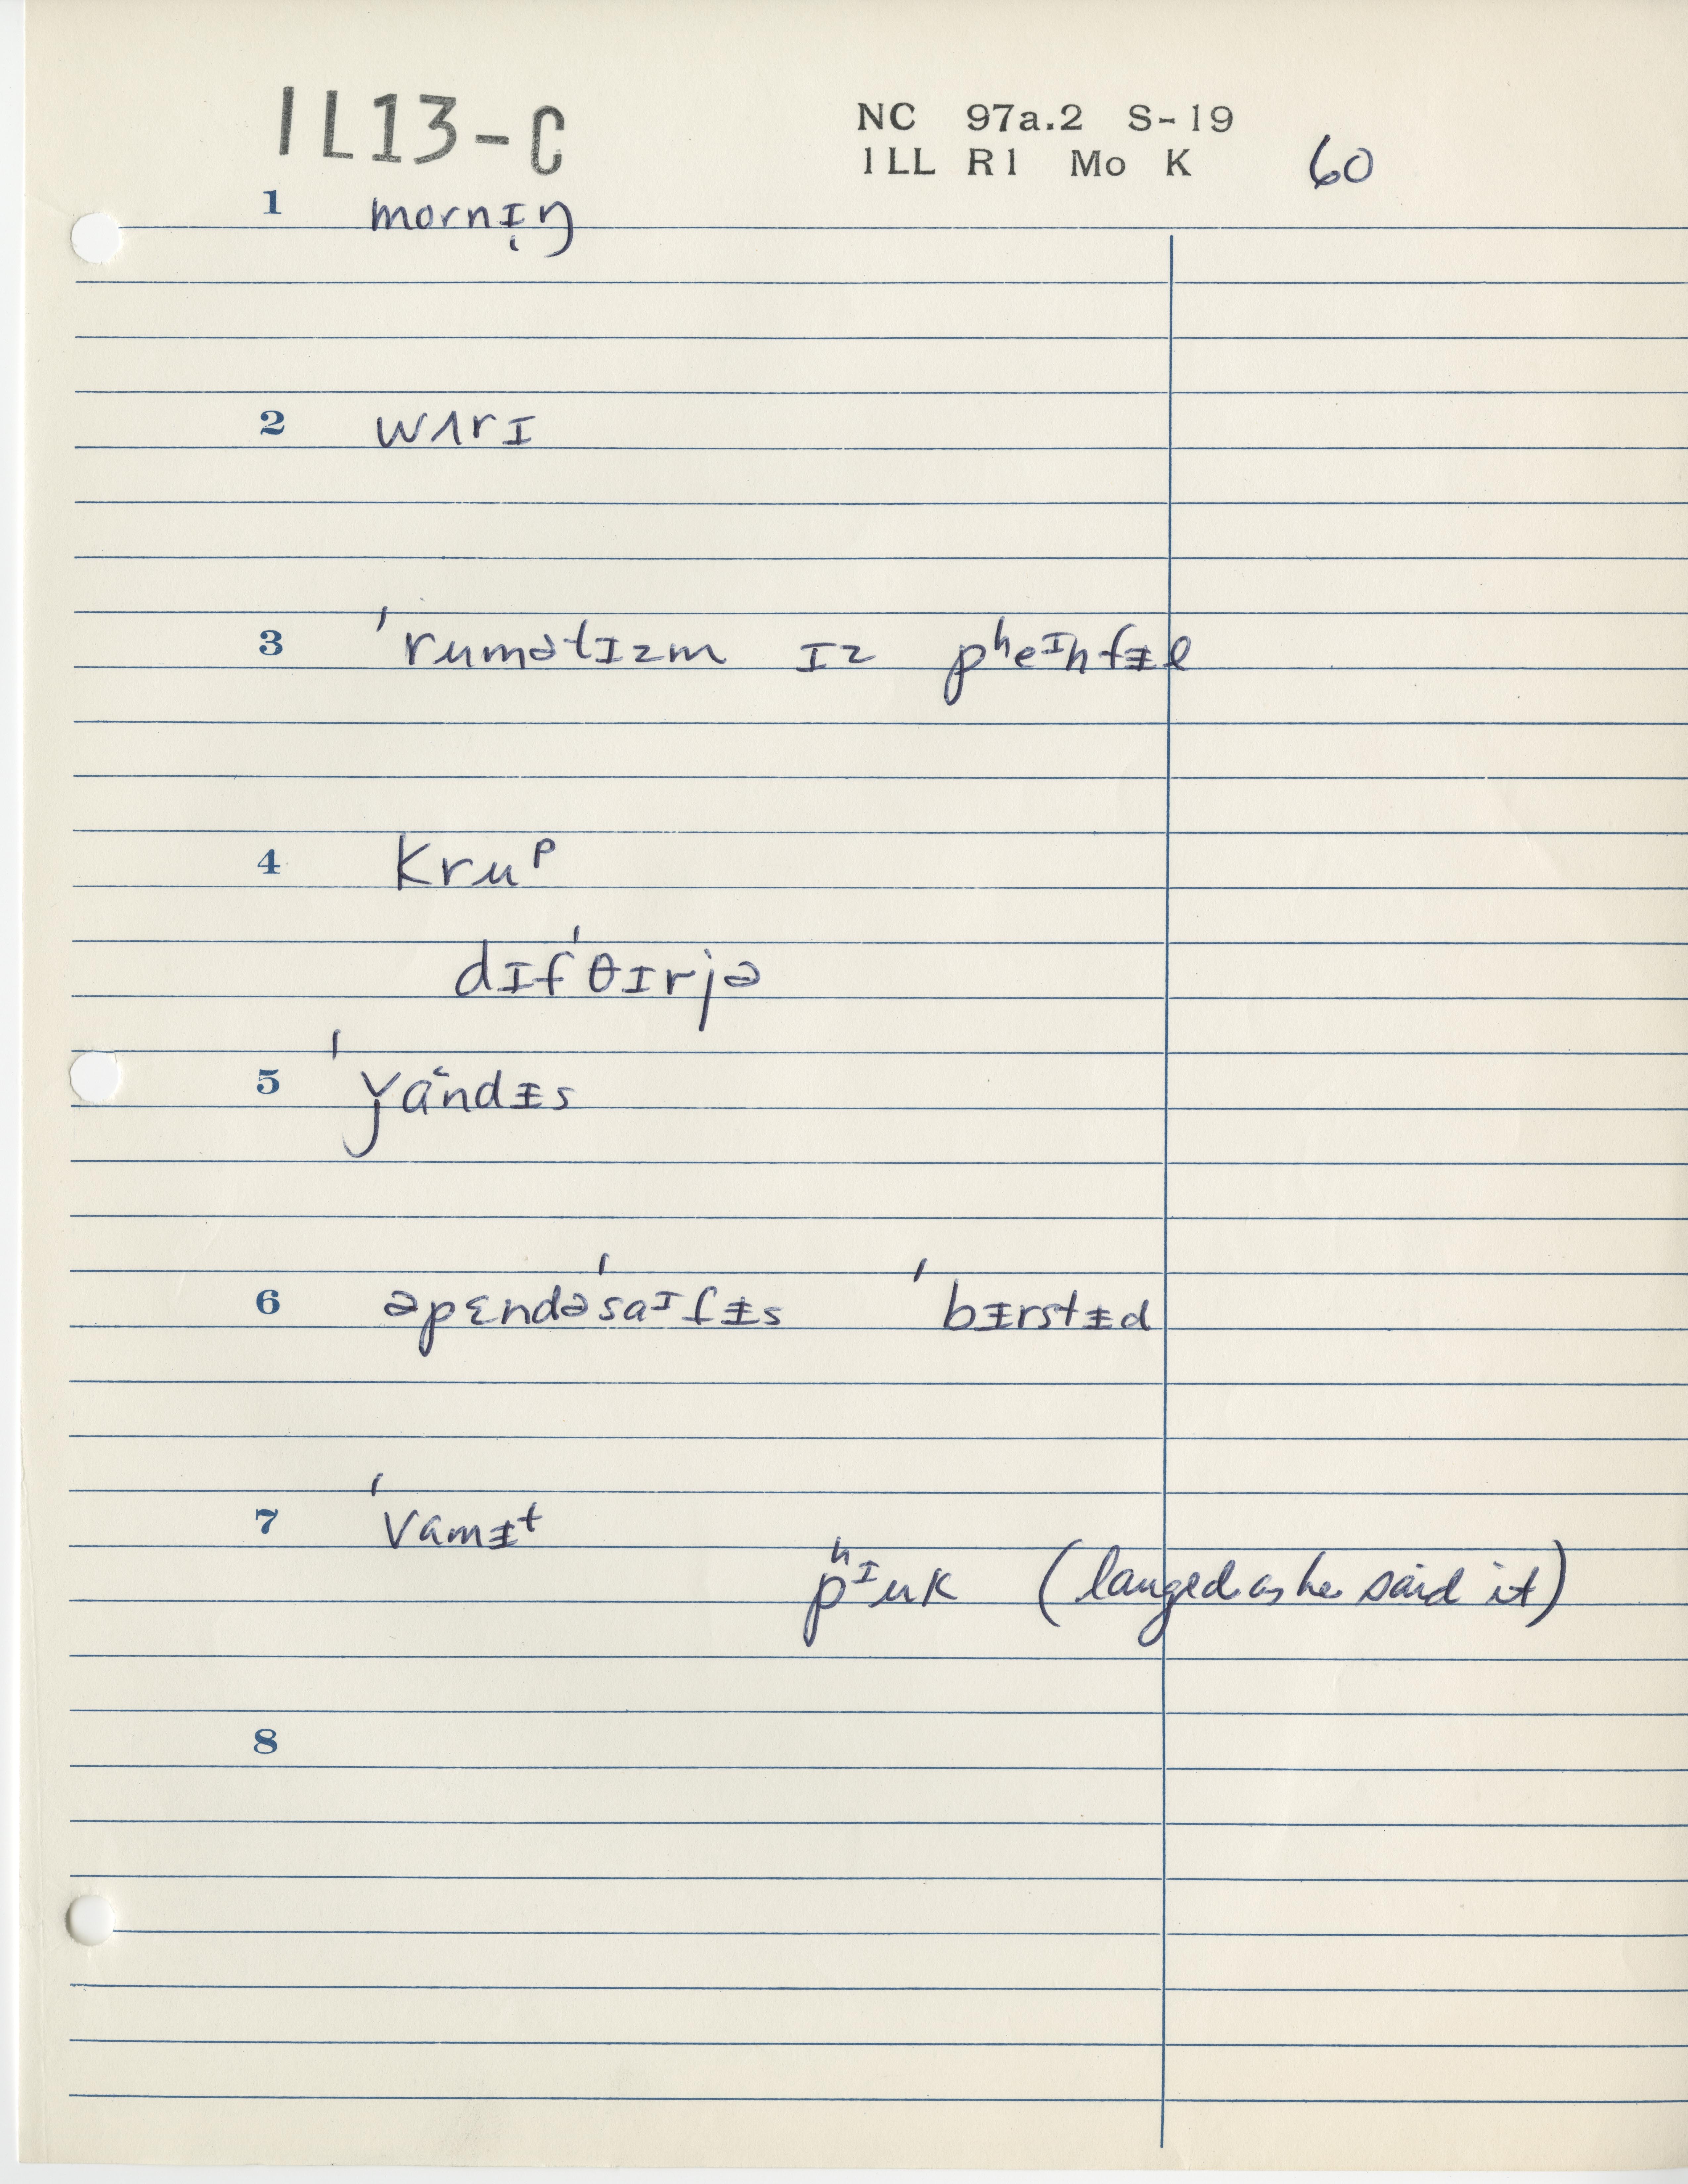 IL13-C
NC 97a.2 S-19
ILL R1 Mo K 60
1 mornɪ̨ŋ
2 wʌrɪ
3 ˈrumətɪzm ɪz pʰeᴵnfᵻl
4 kruᵖ
dɪfˈθɪrjə
5 ˈyɑ̂ndᵻs
6 əpɛndəˈsaᴵfᵻs ˈbᵻrstᵻd
7 ˈvɑmᵻᵗ
pʰᴵuk (langed as he said it)
8